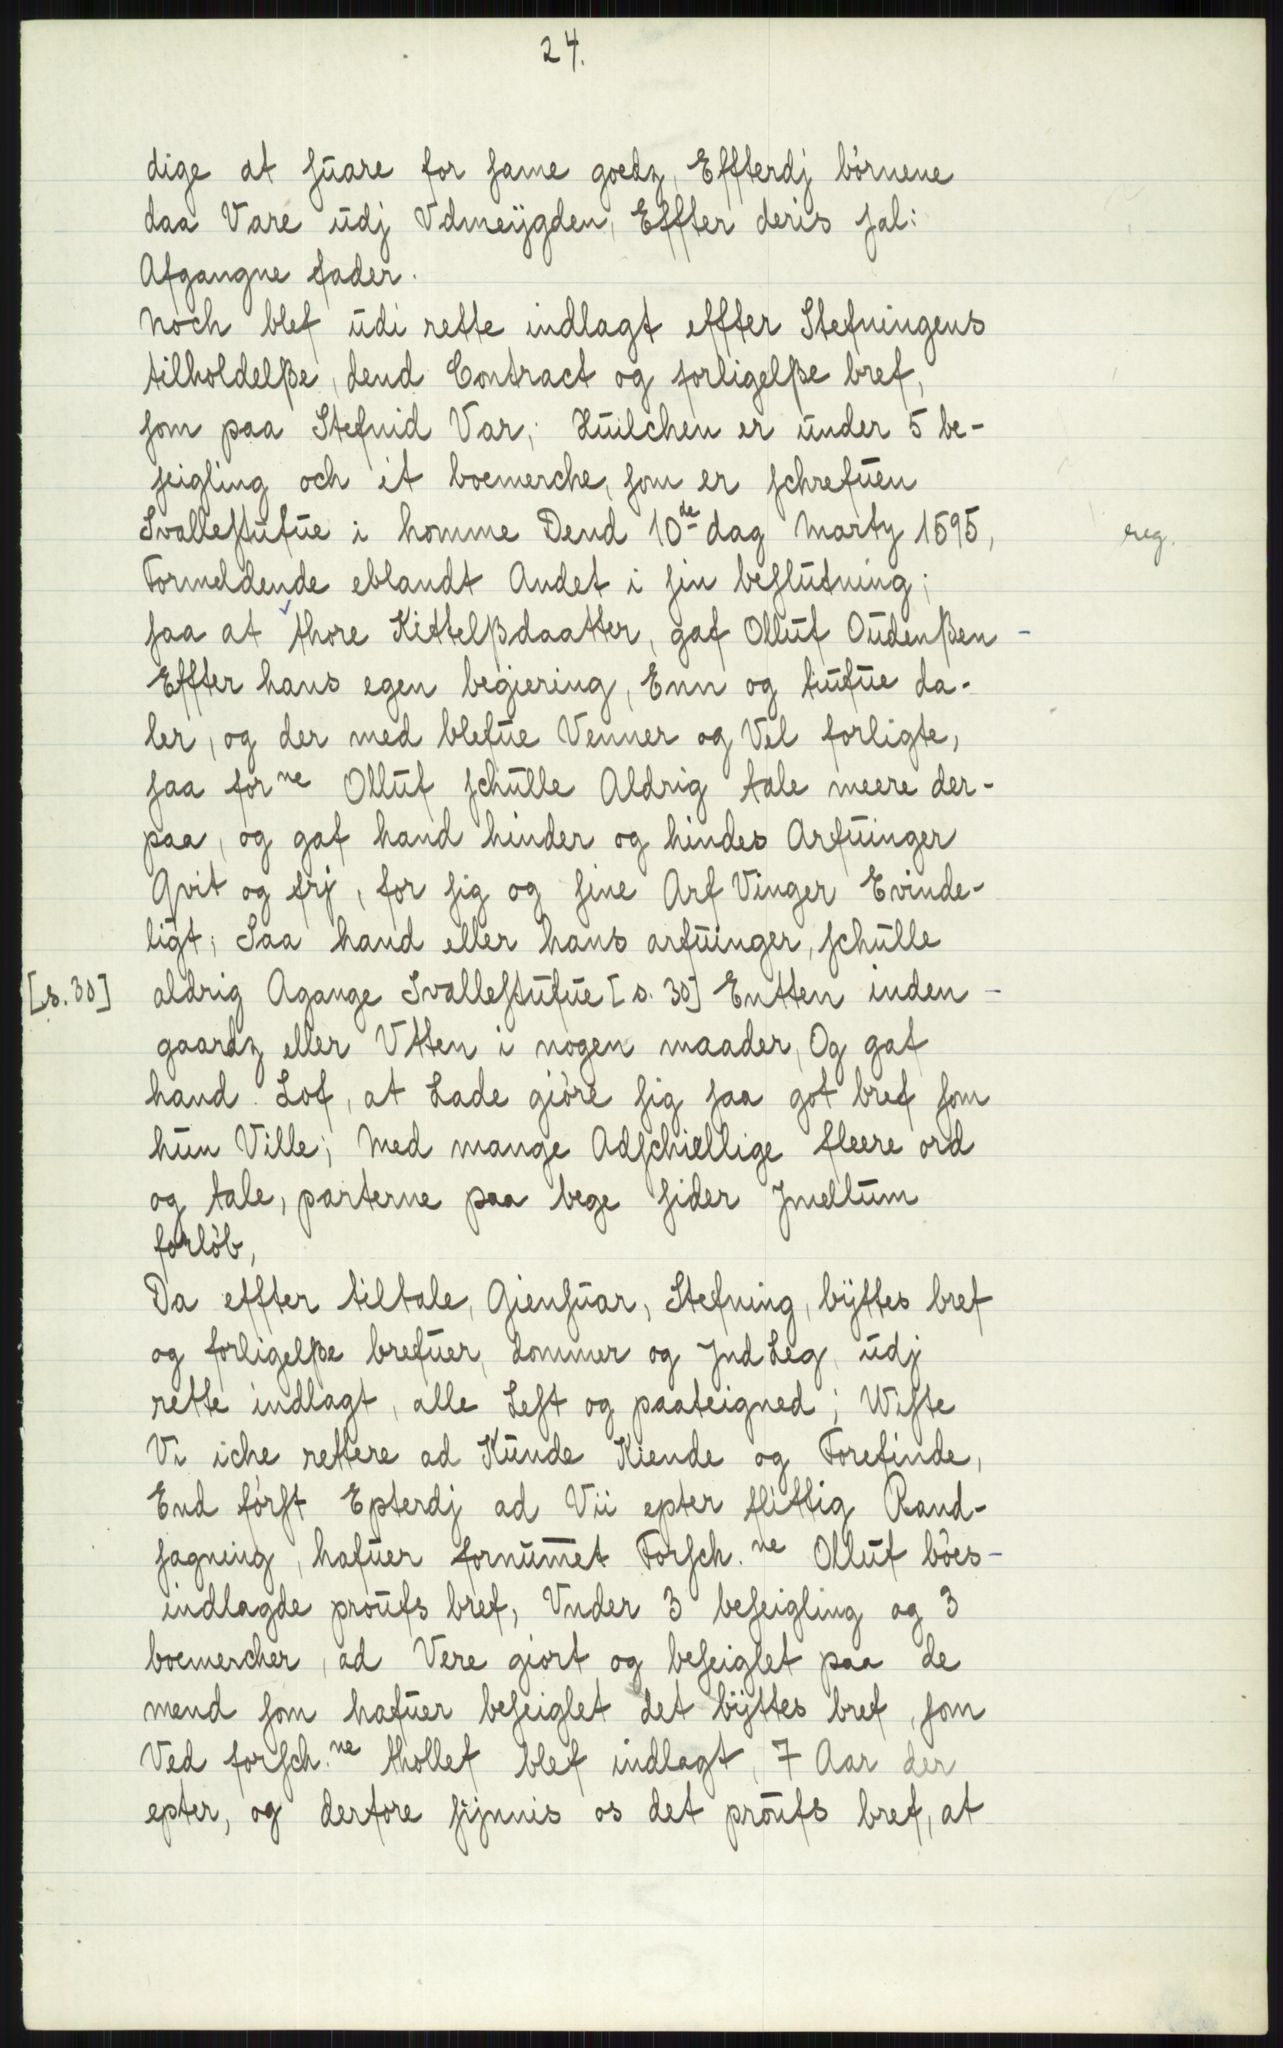 24.
dige at suare for same goedz, Effterdj börnene
daa Vare udj Vdmeÿgden, Effter deris sal:
Afgangne fader.
Noch blef udi rette indlagt effter Stefningens
tilholdelße, dend Contract og forligelße bref,
som paa Stefnid Var; Huilchen er under 5 be-
seigling och it boemerche, som er schrefuen
Svallestufue i homme Dend 10de dag Marty 1595,
reg.
Formeldende eblandt Andet i sin beslutning;
saa at thore Kittelßdaatter, gaf Olluf Oudenßen -
Effter hans egen begiering, Enn og tiufue da-
ler, og der med blefue Venner og Vel forligte,
saa forne Olluf schulle Aldrig tale meere der-
paa, og gaf hand hinder og hindes Arfuinger
Qvit og frj, for sig og sine Arf Vinger Evinde-
ligt; Saa hand eller hans arfuinger, schulle
[s. 30] aldrig Agange Svallestufue [s. 30] Entten inden -
gaardz eller Vtten i nogen maader, Og gaf
hand Lof, at Lade giöre sig saa got bref som
hun Ville; Med mange Adschiellige fleere ord
og tale, parterne paa bege sider Jmellum
forlöb,
Da effter tiltale, Giensuar, Stefning, bÿttes bref
og forligelße brefuer, Dommer og JndLeg, udj
rette indlagt, alle Lest og paateigned; Wiste
Vi iche rettere ad Kunde Kiende og Forefinde,
End först Epterdj ad Vii epter flittig Rand-
sagning, hafuer fornummet Forsch.ne Olluf böes -
indlagde proufs bref, Vnder 3 beseigling og 3
boemercher, ad Vere giort og beseiglet paa de
mend som hafuer beseiglet det bÿttes bref, som
Ved forsch.ne thollef blef indlagt, 7 Aar der
epter, og derfore sÿnnis os det proufs bref, at